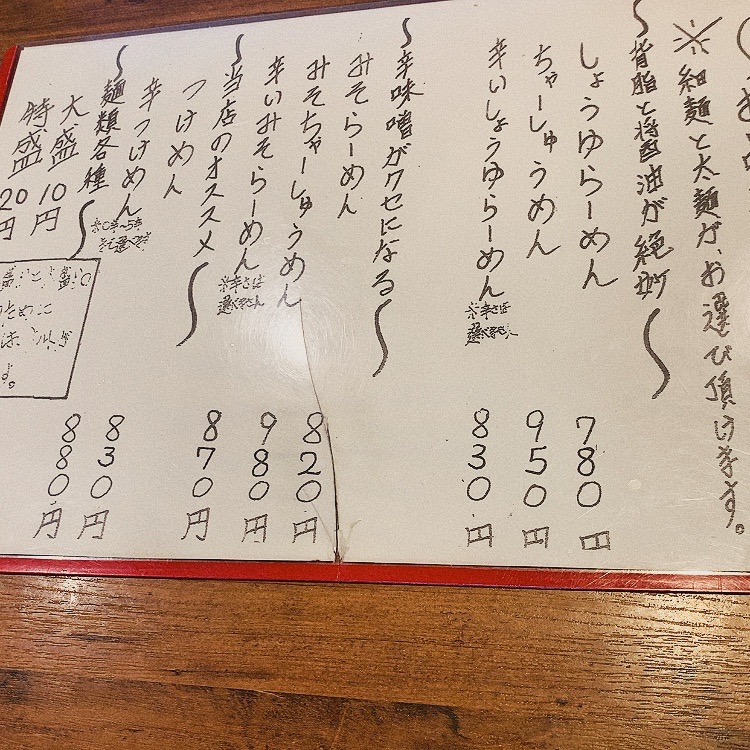 ※細麺と太麺が、お選び頂けます。
〜背脂と醤油が絶妙〜
しょうゆらーめん 780円
ちゃーしゅうめん 950円
辛いしょうゆらーめん ※辛さは選べません 830円
〜辛味噌がクセになる〜
みそらーめん 820円
みそちゃーしゅうめん 980円
辛いみそらーめん ※辛さは選べません 870円
〜当店のオススメ〜
つけめん 830円
辛つけめん 880円
〜麺類各種〜
大盛 10円
特盛 20円